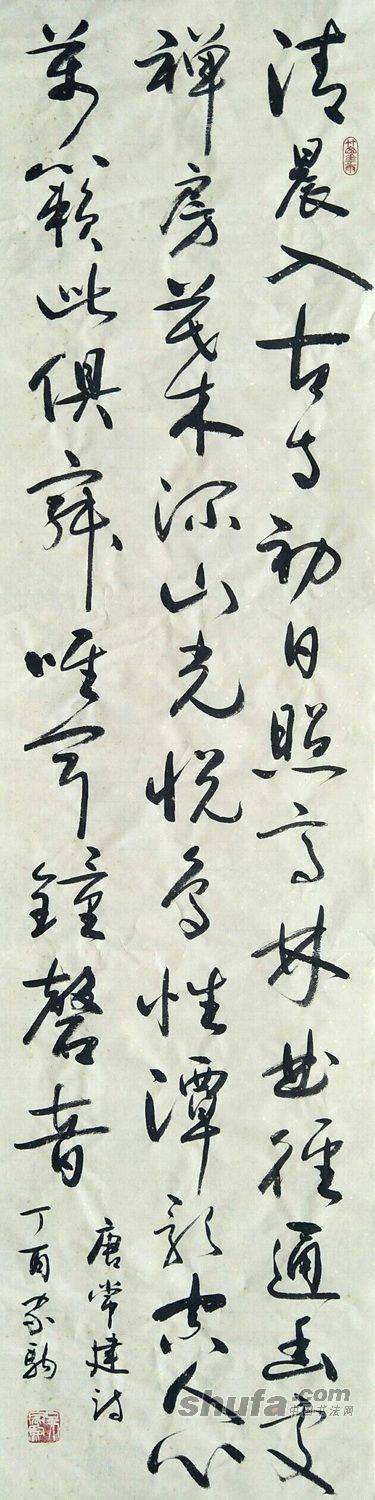 清晨入古寺初日照高林曲徑通幽處
禅房花木深山光悦鳥性潭影空人心
萬籟此俱寂唯聞鐘磬音
唐常建诗
丁酉家駒
shufa.com
中国书法网